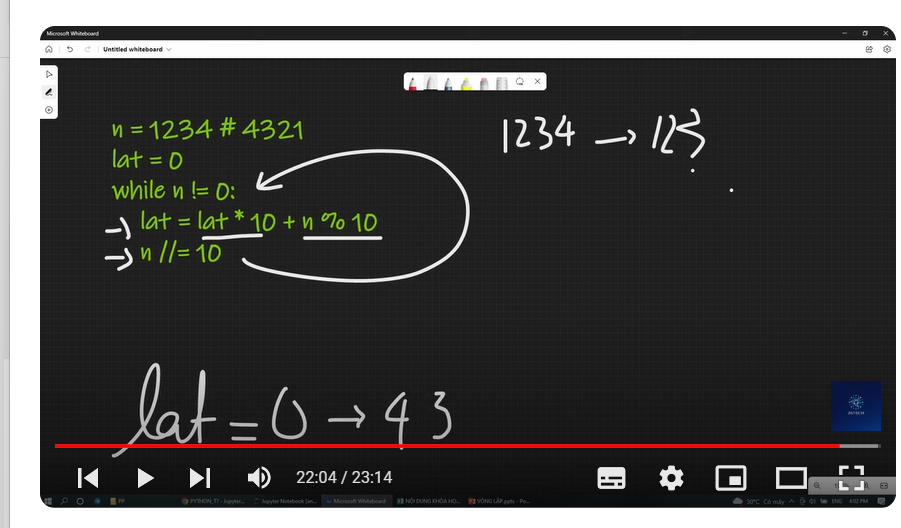 Microsoft Whiteboard
Untitled whiteboard
n = 1234 # 4321
lat = 0
while n != 0:
lat = lat * 10 + n % 10
n //= 10
1234 → 123
lat = 0 → 43
28TECH
22:04 / 23:14
PP
PYTHON_T7 - Jupyter...
Jupyter Notebook (an...
Microsoft Whiteboard
NỘI DUNG KHÓA HO...
VÒNG LẶP.pptx - Po...
30°C Có mây
ENG
4:02 PM